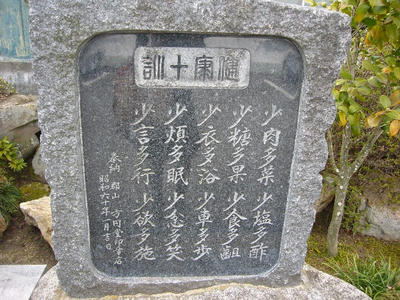 健康十訓
少肉多菜 少塩多酢
少糖多果 少食多齟
少衣多浴 少車多歩
少煩多眠 少念多笑
少言多行 少欲多施
奉納 郡山
昭和六十年一月吉日